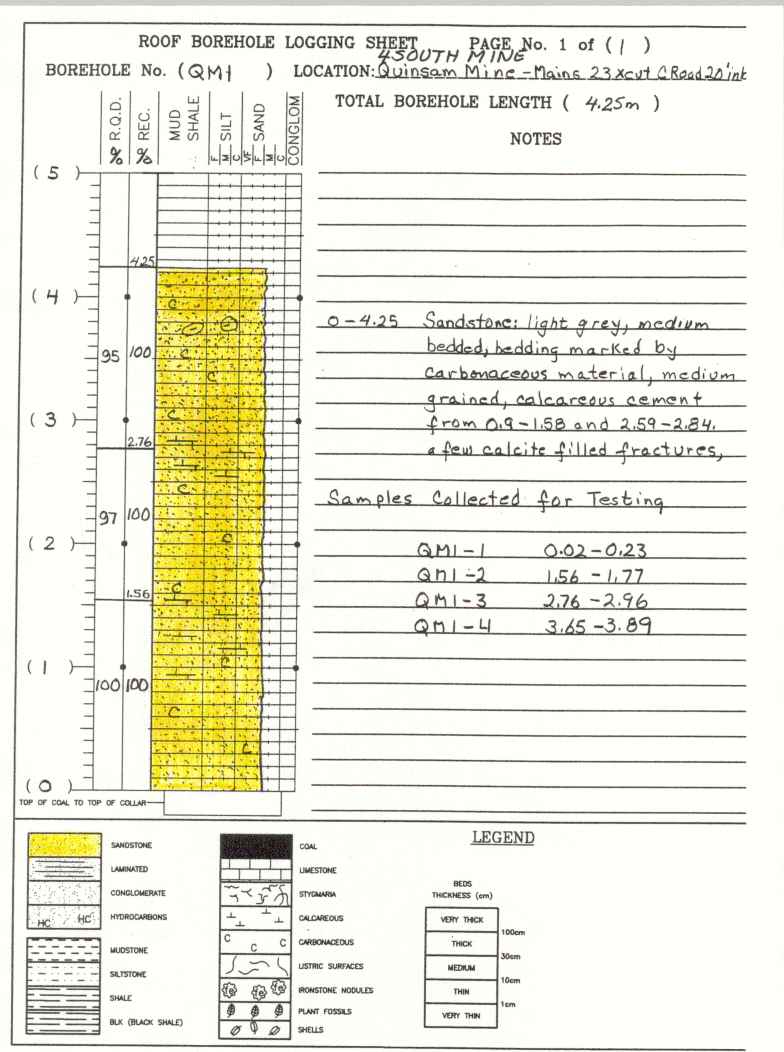 ROOF BOREHOLE LOGGING SHEET PAGE No. 1 of ( 1 )
4SOUTH MINE
BOREHOLE No. (QM1 ) LOCATION: Quinsam Mine - Mains 23 xcut C Road 20' int
TOTAL BOREHOLE LENGTH ( 4.25m )
NOTES
% R.Q.D.
% REC.
MUD
SHALE
SILT
SAND
CONGLOM
F M C VF F M C
( 5 )
4.25
( 4 )
0 - 4.25 Sandstone: light grey, medium
bedded, bedding marked by
95 100
carbonaceous material, medium
grained, calcareous cement
( 3 )
from 0.9 - 1.58 and 2.59 - 2.84.
2.76
a few calcite filled fractures,
Samples Collected for Testing
97 100
( 2 )
QM1 - 1 0.02 - 0.23
QM1 - 2 1.56 - 1.77
1.56
QM1 - 3 2.76 - 2.96
QM1 - 4 3.65 - 3.89
( 1 )
100 100
( 0 )
TOP OF COAL TO TOP OF COLLAR
LEGEND
SANDSTONE
LAMINATED
CONGLOMERATE
HC HC HYDROCARBONS
MUDSTONE
SILTSTONE
SHALE
BLK (BLACK SHALE)
COAL
LIMESTONE
STYGMARIA
CALCAREOUS
C C C CARBONACEOUS
LISTRIC SURFACES
IRONSTONE NODULES
PLANT FOSSILS
SHELLS
BEDS
THICKNESS (cm)
VERY THICK
100cm
THICK
30cm
MEDIUM
10cm
THIN
1cm
VERY THIN